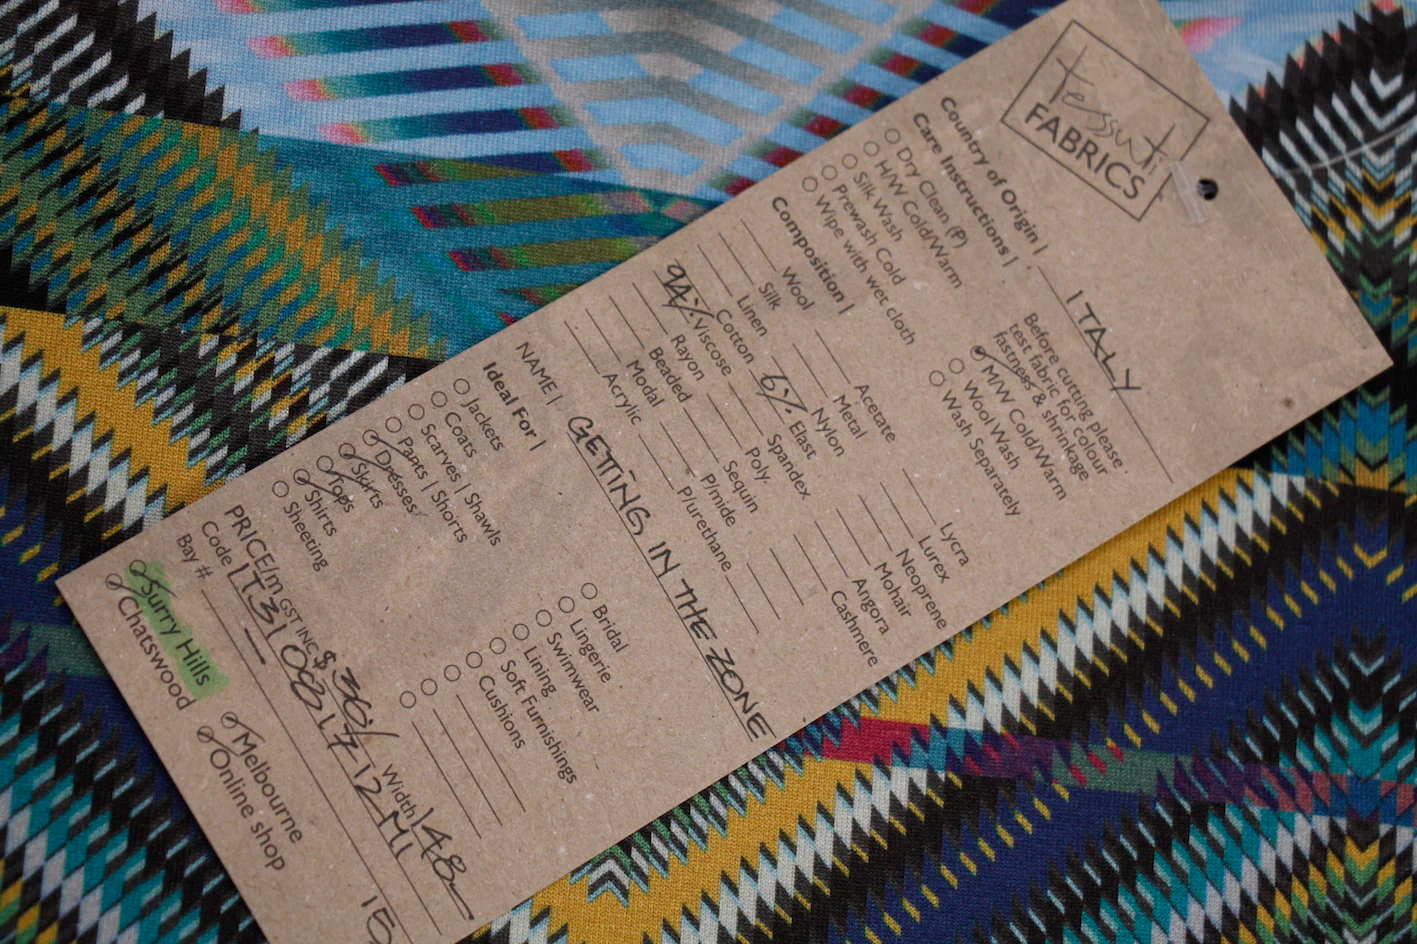 tessuti
FABRICS
Country of Origin | ITALY
Care Instructions |
Before cutting please
test fabric for colour
fastness & shrinkage
Dry Clean (P)
H/W Cold/Warm
Silk Wash
Prewash Cold
Wipe with wet cloth
M/W Cold/Warm
Wool Wash
Wash Separately
Composition |
Wool
Silk
Linen
Cotton
94% Viscose
Rayon
Beaded
Modal
Acrylic
Acetate
Metal
Nylon
6% Elast
Spandex
Poly.
Sequin
P/mide
P/urethane
Lycra
Lurex
Neoprene
Mohair
Angora
Cashmere
NAME | GETTING IN THE ZONE
Ideal For |
Jackets
Coats
Scarves | Shawls
Pants | Shorts
Dresses
Skirts
Tops
Shirts
Sheeting
Bridal
Lingerie
Swimwear
Lining
Soft Furnishings
Cushions
PRICE/m GST INC $ 30/ Width | 148
Bay #
Surry Hills
Chatswood
Melbourne
Online shop